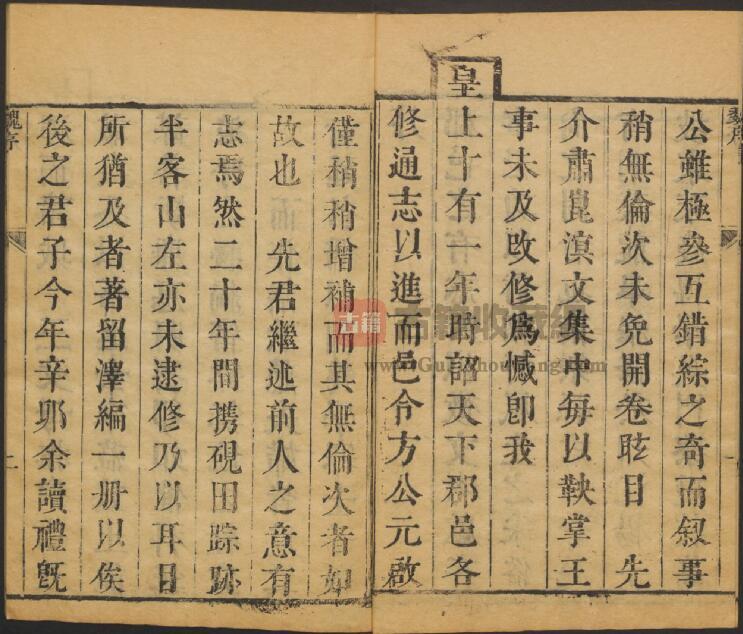 公雖極參互錯綜之奇而叙事
稍無倫次未免開卷眩目 先
介肅崑溟文集中每以鞅掌王
事未及改修爲憾卽我
皇上十有一年時詔天下郡邑各
修通志以進而邑令方公元啟
僅稍稍增補而其無倫次者如
故也而 先君繼述前人之意有
志焉然二十年間携硯田踪跡
半客山左亦未逮修乃以耳目
所猶及者著留澤編一册以俟
後之君子今年辛卯余讀禮旣
魏序
古籍
古籍收藏網